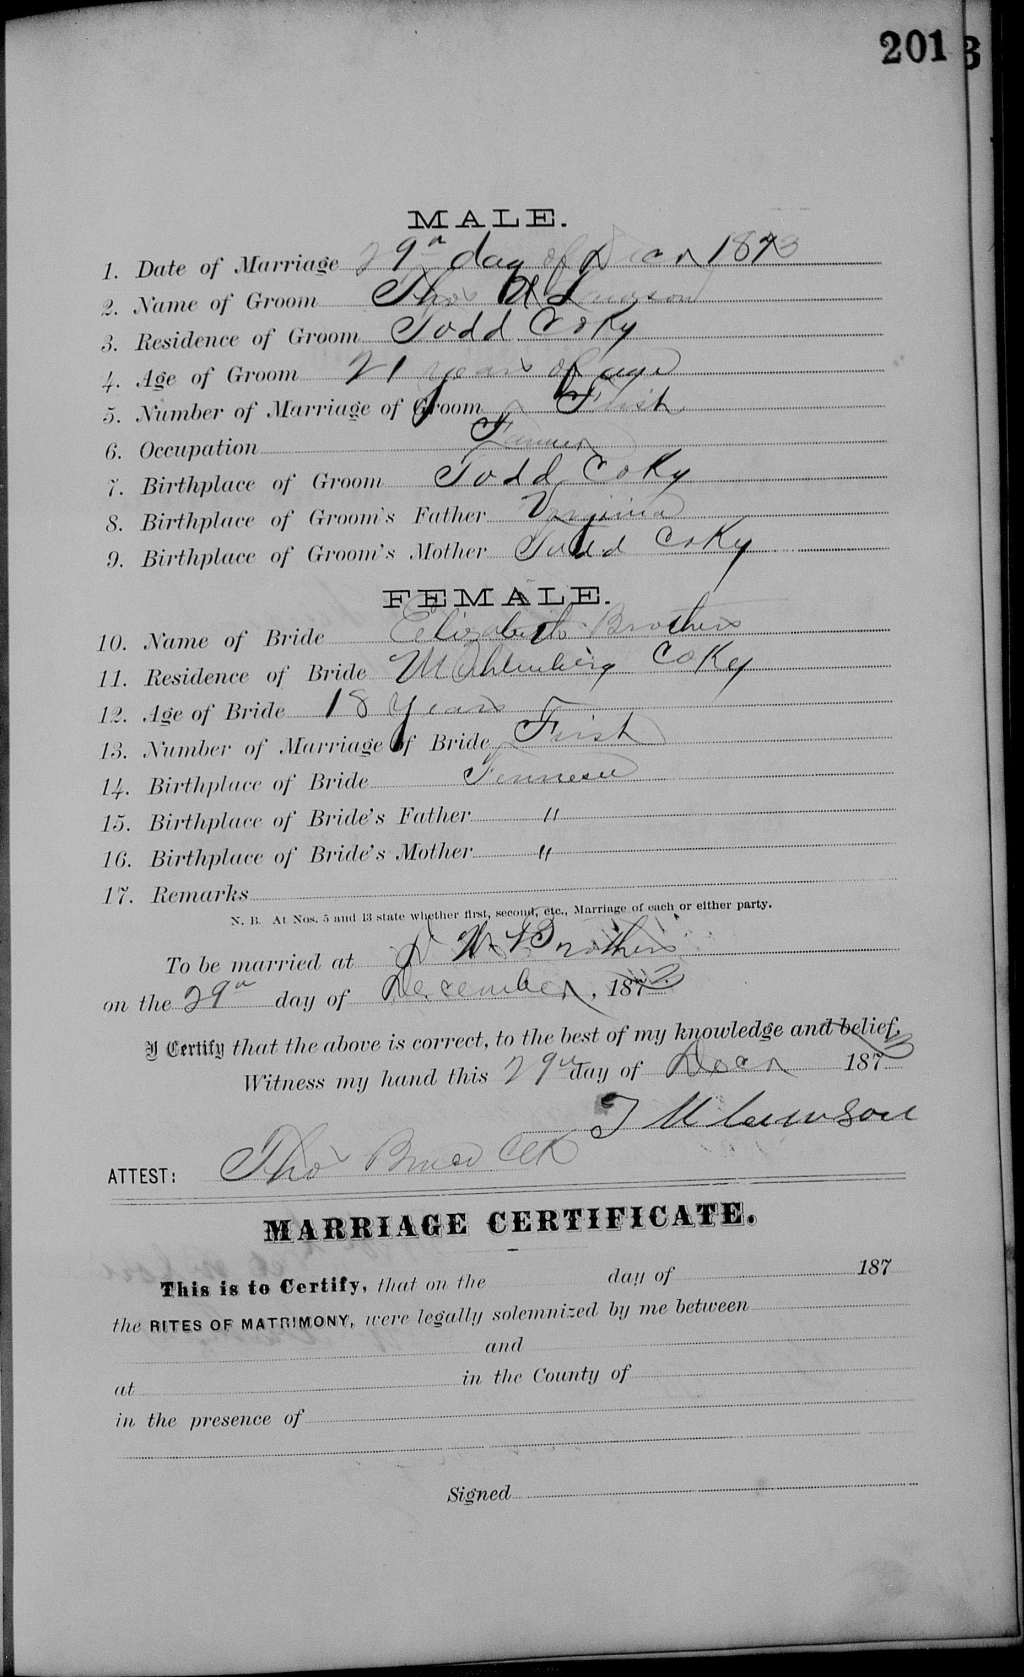 201
MALE.
1. Date of Marriage 29th day of Decr 1873
2. Name of Groom Thos M Lawson
3. Residence of Groom Todd Co Ky
4. Age of Groom 21 years of age
5. Number of Marriage of Groom First
6. Occupation Farmer
7. Birthplace of Groom Todd Co Ky
8. Birthplace of Groom's Father Virginia
9. Birthplace of Groom's Mother Todd Co Ky
FEMALE.
10. Name of Bride Elizabeth Brothers
11. Residence of Bride Muhlenberg Co Ky
12. Age of Bride 18 years
13. Number of Marriage of Bride First
14. Birthplace of Bride Tennessee
15. Birthplace of Bride's Father "
16. Birthplace of Bride's Mother "
17. Remarks
N. B. At Nos. 5 and 13 state whether first, second, etc., Marriage of each or either party.
To be married at W Brothers
on the 29th day of December, 1873
I Certify that the above is correct, to the best of my knowledge and belief.
Witness my hand this 29th day of Decr 1873
T M Lawson
ATTEST: Thos Clk
MARRIAGE CERTIFICATE.
This is to Certify, that on the day of 187
the RITES OF MATRIMONY, were legally solemnized by me between
and
at in the County of
in the presence of
Signed